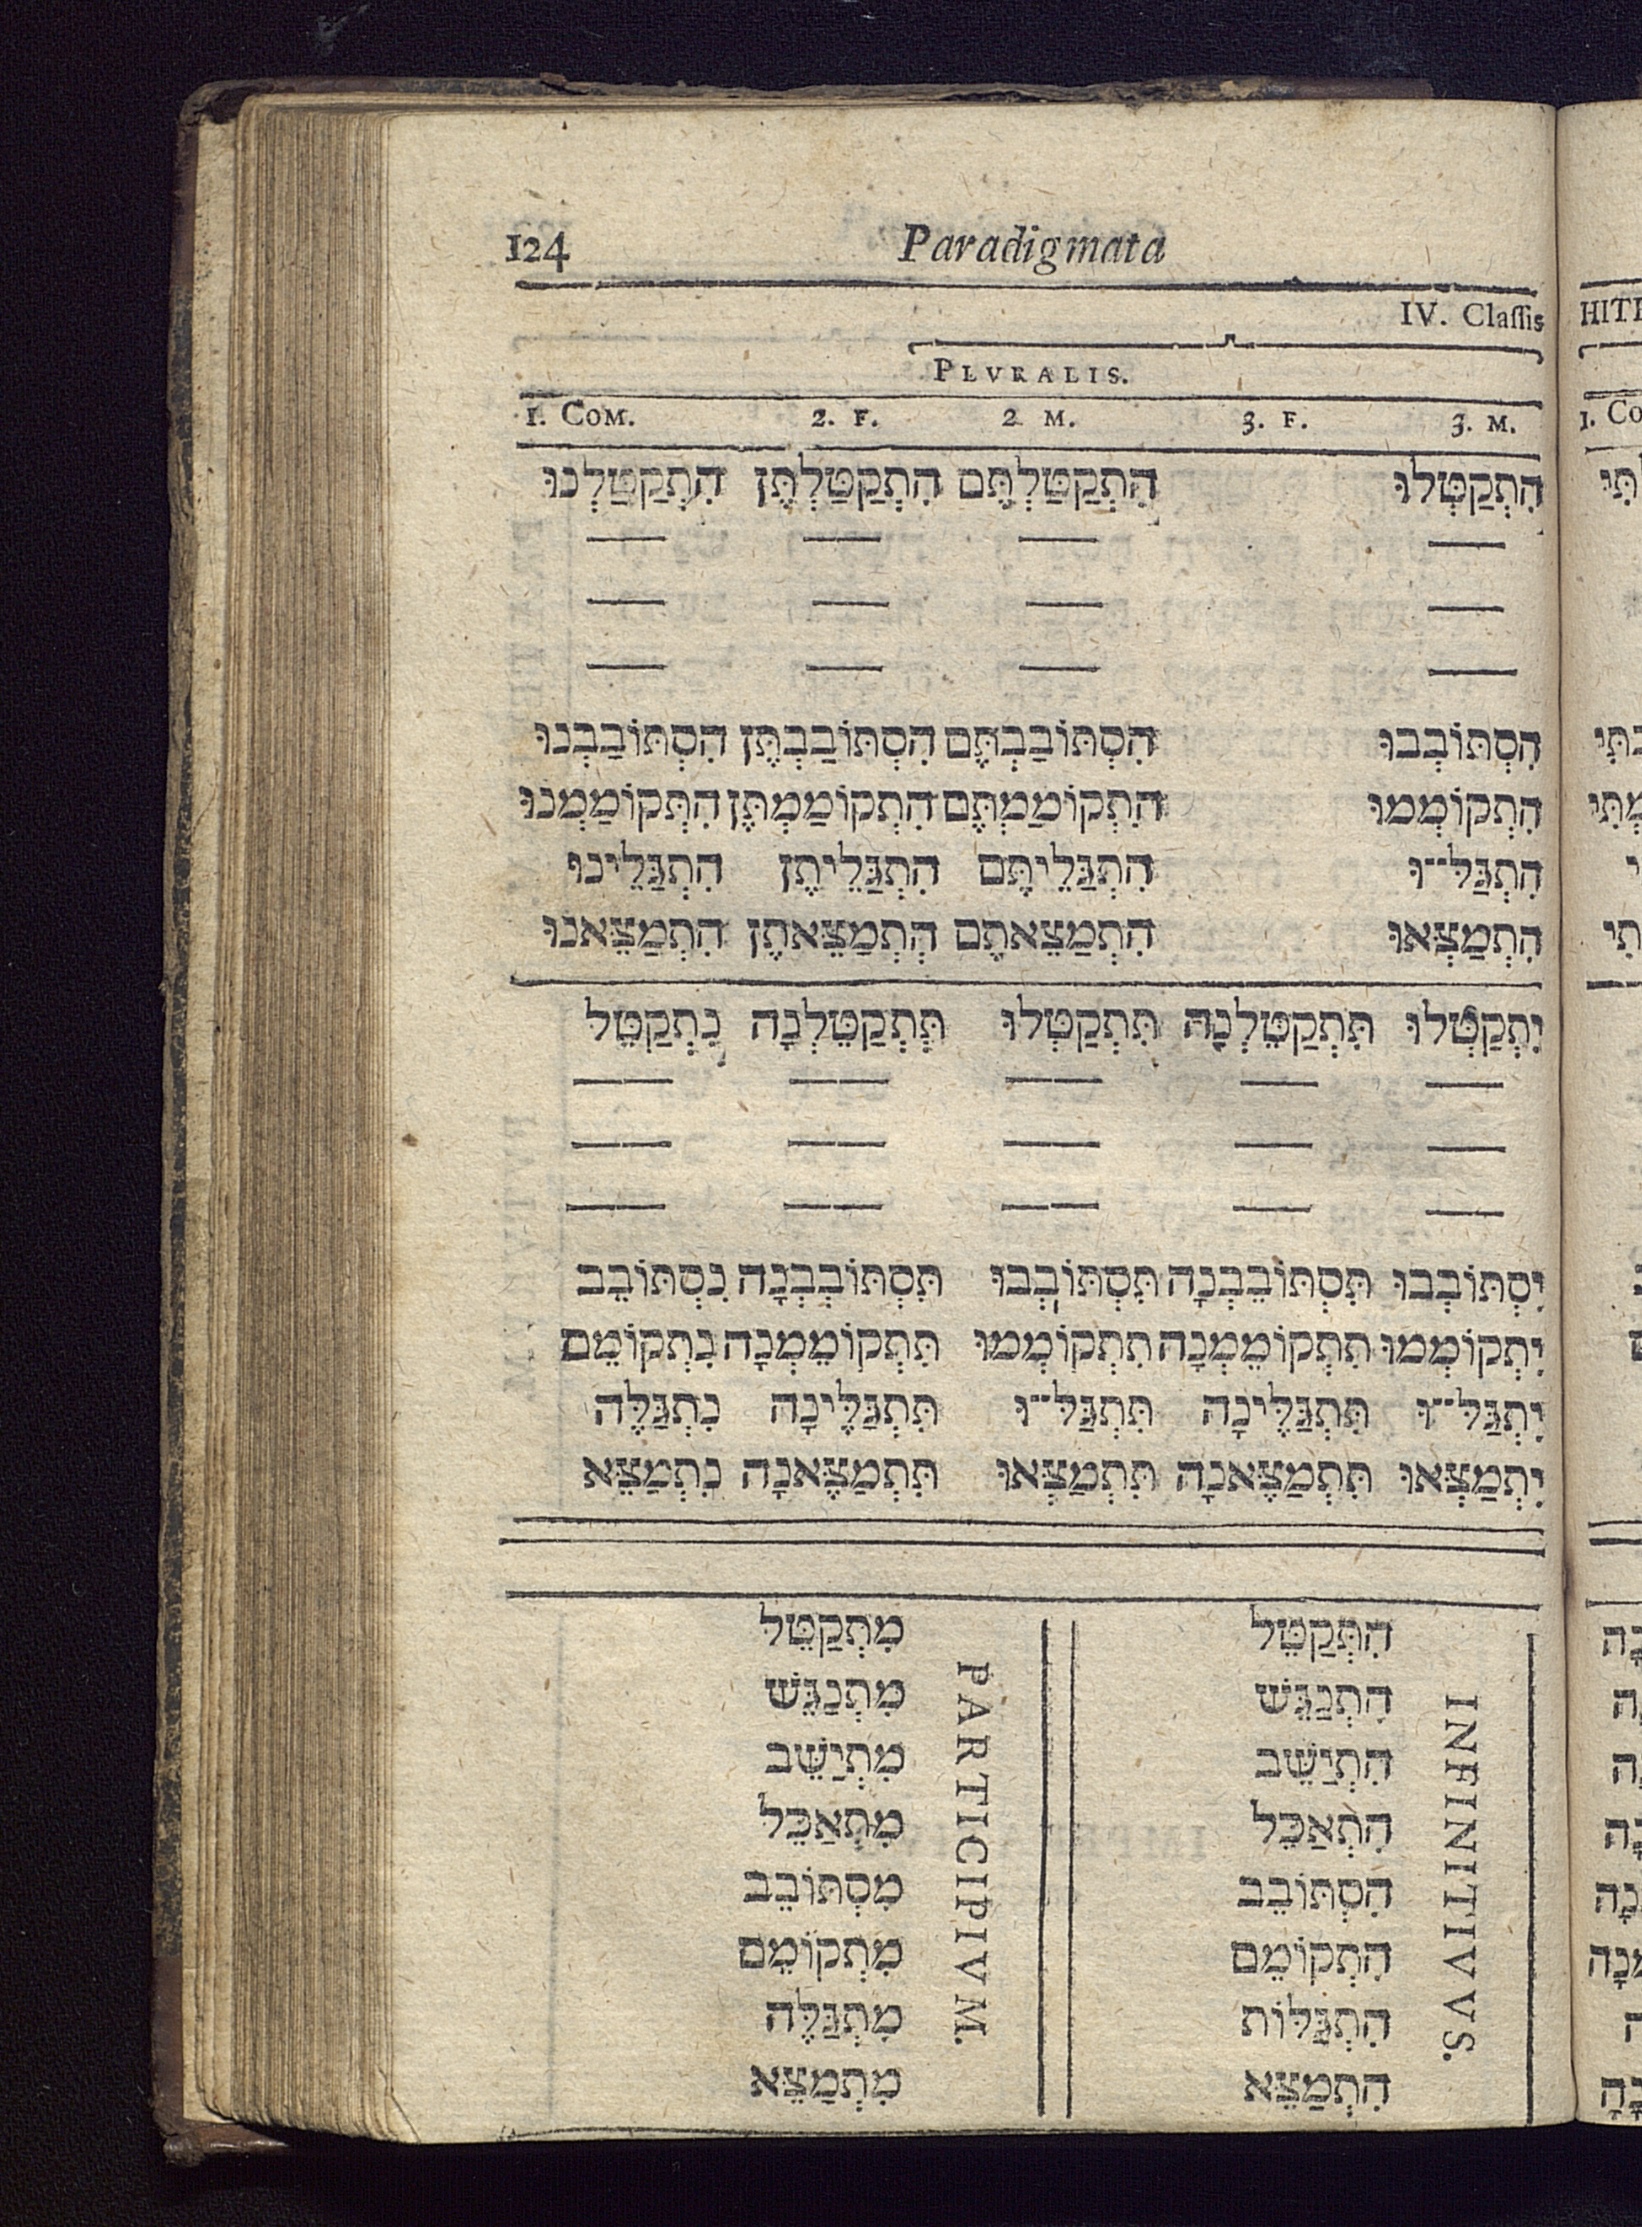 124 Paradigmata
IV. Claſſis
PLVRALIS.
1. COM. 2. F. 2 M. 3. F. 3. M.
הִתְקַטְּלוּ הִתְקַטַּלְתֶּם הִתְקַטַּלְתֶּן הִתְקַטַּלְנוּ
— — — —
— — — —
— — — —
הִסְתּוֹבְבוּ הִסְתּוֹבַבְתֶּם הִסְתּוֹבַבְתֶּן הִסְתּוֹבַבְנוּ
הִתְקוֹמְמוּ הִתְקוֹמַמְתֶּם הִתְקוֹמַמְתֶּן הִתְקוֹמַמְנוּ
הִתְגַּלּ־־וּ הִתְגַּלֵּיתֶם הִתְגַּלֵּיתֶן הִתְגַּלֵּינוּ
הִתְמַצְּאוּ הִתְמַצֵּאתֶם הְתְמַצֵּאתֶן הִתְמַצֵּאנוּ
יִתְקַטְּלוּ תִּתְקַטֵּלְנָה תִּתְקַטְּלוּ תְּתְקַטֵּלְנָה נִתְקַטֵּל
— — — — —
— — — — —
— — — — —
יִסְתּוֹבְבוּ תִּסְתּוֹבֵבְנָה תִּסְתּוֹבְבוּ תִּסְתּוֹבְבְנָה נִסְתּוֹבֵב
יִתְקוֹמְמוּ תִתְקוֹמֵמְנָה תִתְקוֹמְמוּ תִּתְקוֹמֵמְנָה נִתְקוֹמֵם
יִתְגַּלּ־־וּ תִּתְגַּלֶּינָה תִּתְגַּלּ־־וּ תִּתְגַּלֶּינָה נִתְגַּלֶּה
יִתְמַצְּאוּ תִּתְמַצֶּאנָה תִּתְמַצְּאוּ תִּתְמַצֶּאנָה נִתְמַצֵּא
INFINITIVVS.
הִתְקַטֵּל
הִתְנַגֵּשׁ
הִתְיַשֵּׁב
הִתְאַכֵּל
הִסְתּוֹבֵב
הִתְקוֹמֵם
הִתְגַּלּוֹת
הִתְמַצֵּא
PARTICIPIVM.
מִתְקַטֵּל
מִתְנַגֵּשׁ
מִתְיַשֵּׁב
מִתְאַכֵּל
מִסְתּוֹבֵב
מִתְקוֹמֵם
מִתְגַּלֶּה
מִתְמַצֵּא
HIT
1. Co